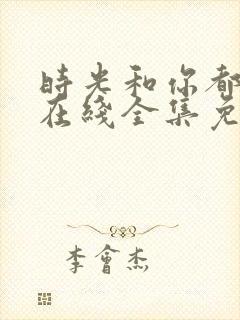 時光和你都
在綫全集免
李會杰